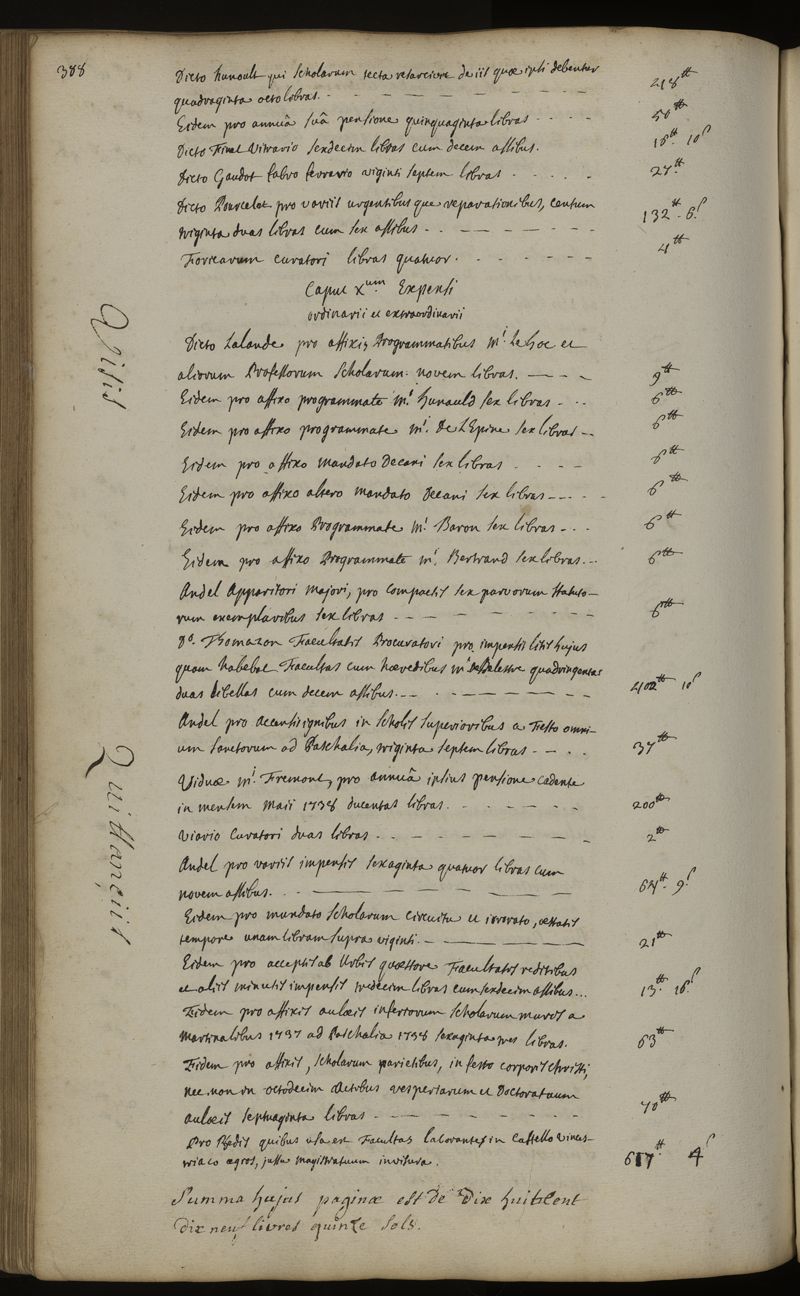 388
Dicto hunoult qui Scholarum tecta resarcivit de iis quæ ipsi debentur
quadraginta octo libras. 218tt
Eidem pro annuâ suâ pensione quinquaginta libras 50tt
Dicto Finet Vitrario sexdecim libras cum decem assibus. 16tt 10s
Dicto Gaudot fabro ferrario viginti septem libras 27tt
Dicto Pourcelot pro variis urgentibusque reparationibus, centum
triginta duas libras cum sex assibus 132tt. 6s
Foricarum curatori libras quatuor. 4tt
Caput Xum Expensi
ordinarii et extraordinarii
Visis
Dicto Lalande pro affixis Programmatibus Mi. Le hoc et
aliorum Professorum Scholarum: novem libras. 9tt
Eidem pro affixo programmate Mi hunauld sex libras 6tt
Eidem pro affixo programmate Mi. De L'Epine sex libras 6tt
Eidem pro affixo mandato Decani sex libras 6tt
Eidem pro affixo altero mandato Decani sex libras 6tt
Eidem pro affixo Programmate Mi Baron sex libras 6tt
Eidem pro affixo Programmate Mi. Bertrand sex libras 6tt
Andel Apparitori majori, pro compactis sex parvorum statuto-
rum exemplaribus sex libras 6tt
Do. Thomazon Facultatis Procuratori pro impensis litis hujus
quam habebat Facultas cum hæredibus Mi quadringentas
duas libellas cum decem assibus. 402tt 10s
Andel pro accensis ignibus in Scholis Superioribus a Festo omni-
um Sanctorum ad Paschalia, triginta septem libras 37tt
Quittanciis
Viduæ Mi. Fremont, pro annuâ ipsius pensione cadente
in mensem Maii 1738 ducentas libras. 200tt
Viario Curatori duas libras 2tt
Andel pro variis impensis sexaginta quatuor libras cum
novem assibus. 64tt. 9s
Eidem pro mundato Scholarum circuitu et irrorato, æstatis
tempore unam libram supra viginti. 21tt
Eidem pro acceptis ab Urbis quæstore Facultatis reditibus
et aliis minutis impensis tredecim libras cum sexdecim assibus... 13tt. 16s
Eidem pro affixis aulæis inferiorum Scholarum muris a
Martinalibus 1737 ad Paschalia 1738 sexaginta tres libras. 63tt
Eidem pro affixis, Scholarum parietibus, in festo corporis christi,
nec non in octodecim Actibus vesperiarum et Doctoratuum
aulæis septuaginta libras 70tt
Pro Rhedis quibus usa est Facultas laborantes in Castello vinus-
triaco ægros, jussu magistratuum invisura. 617tt 4s
Summa hujus paginæ est de Dix huit Cent
Dix neuf livres quinze sols.